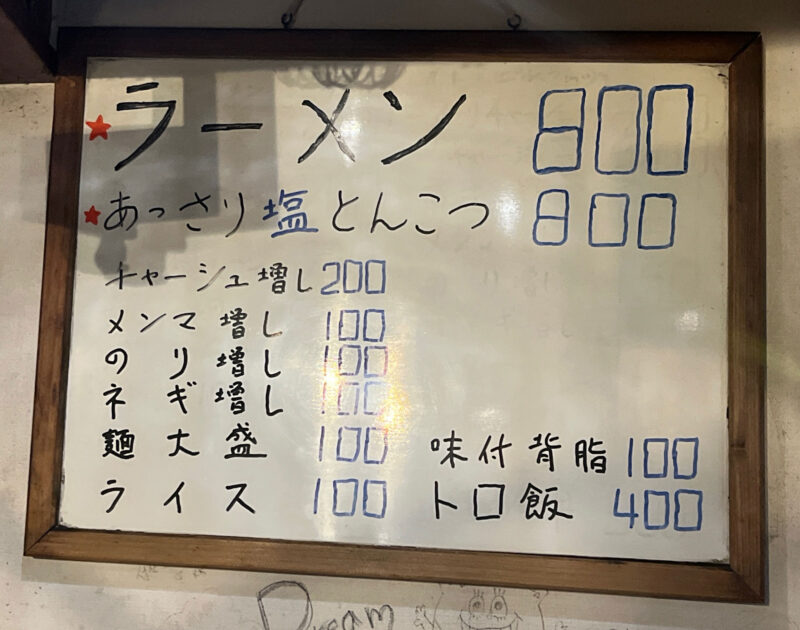 ★ラーメン 800
★あっさり塩とんこつ 800
チャーシュ増し 200
メンマ増し 100
のり増し 100
ネギ増し 100
麺大盛 100
味付背脂 100
ライス 100
トロ飯 400
Dream